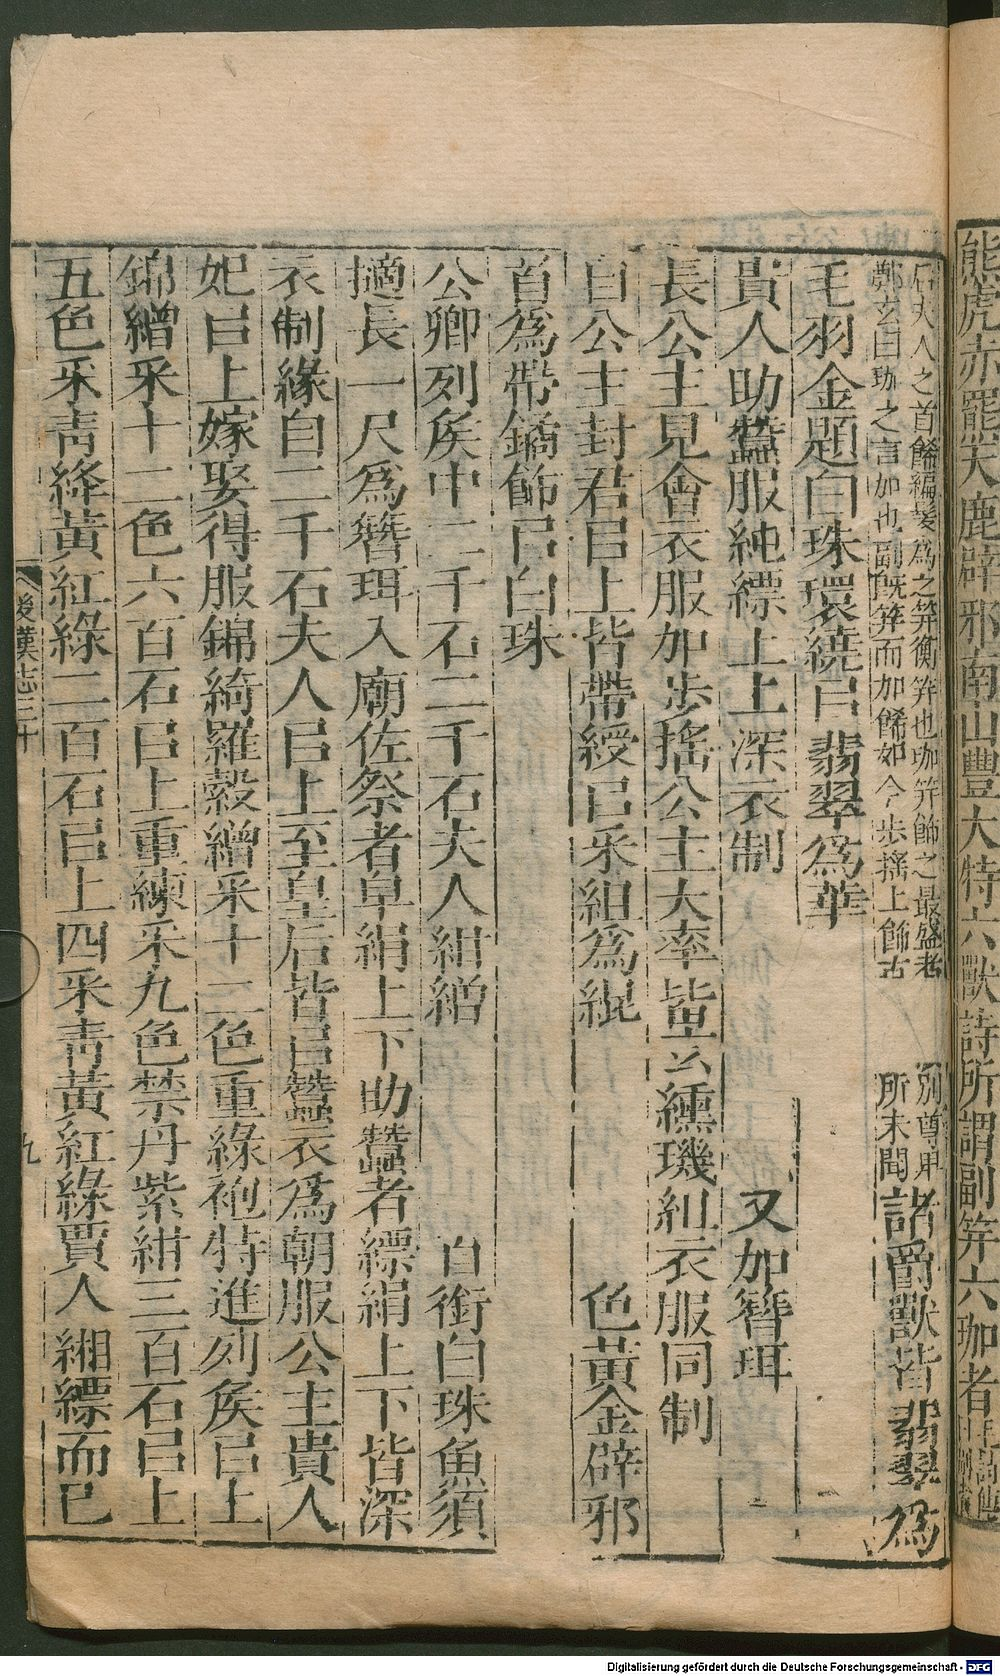 熊虎赤羆天鹿辟邪南山豐大特六獸詩所謂副笄六珈者
后夫人之首餙編髮為之笄衡笄也珈笄飾之最盛者 別尊卑
鄭玄曰珈之言加也副旣笄而加餙如今步搖上飾古 所未聞
諸爵獸皆翡翠為
毛羽金題白珠環繞㠯翡翠為華
貴人助蠶服純縹上上深衣制 又加簪珥
長公主見會衣服加步搖公主大率皆 纁璣糾衣服同制
自公主封君㠯上皆帶綬㠯采組為緄 色黃金辟邪
首為帶鐍飾㠯白珠
公卿列矦中二千石二千石夫人紺繒 白銜白珠魚須
擿長一尺為簪珥入廟佐祭者皁絹上下助蠶者縹絹上下皆深
衣制緣自二千石夫人㠯上至皇后皆㠯蠶衣為朝服公主貴人
妃㠯上嫁娶得服錦綺羅縠繒采十二色重緣袍特進列矦㠯上
錦繒采十二色六百石㠯上重練采九色禁丹紫紺三百石㠯上
五色采青絳黃紅綠二百石㠯上四采青黃紅綠賈人緗縹而已
後漢志三十 九
Digitalisierung gefördert durch die Deutsche Forschungsgemeinschaft - DFG